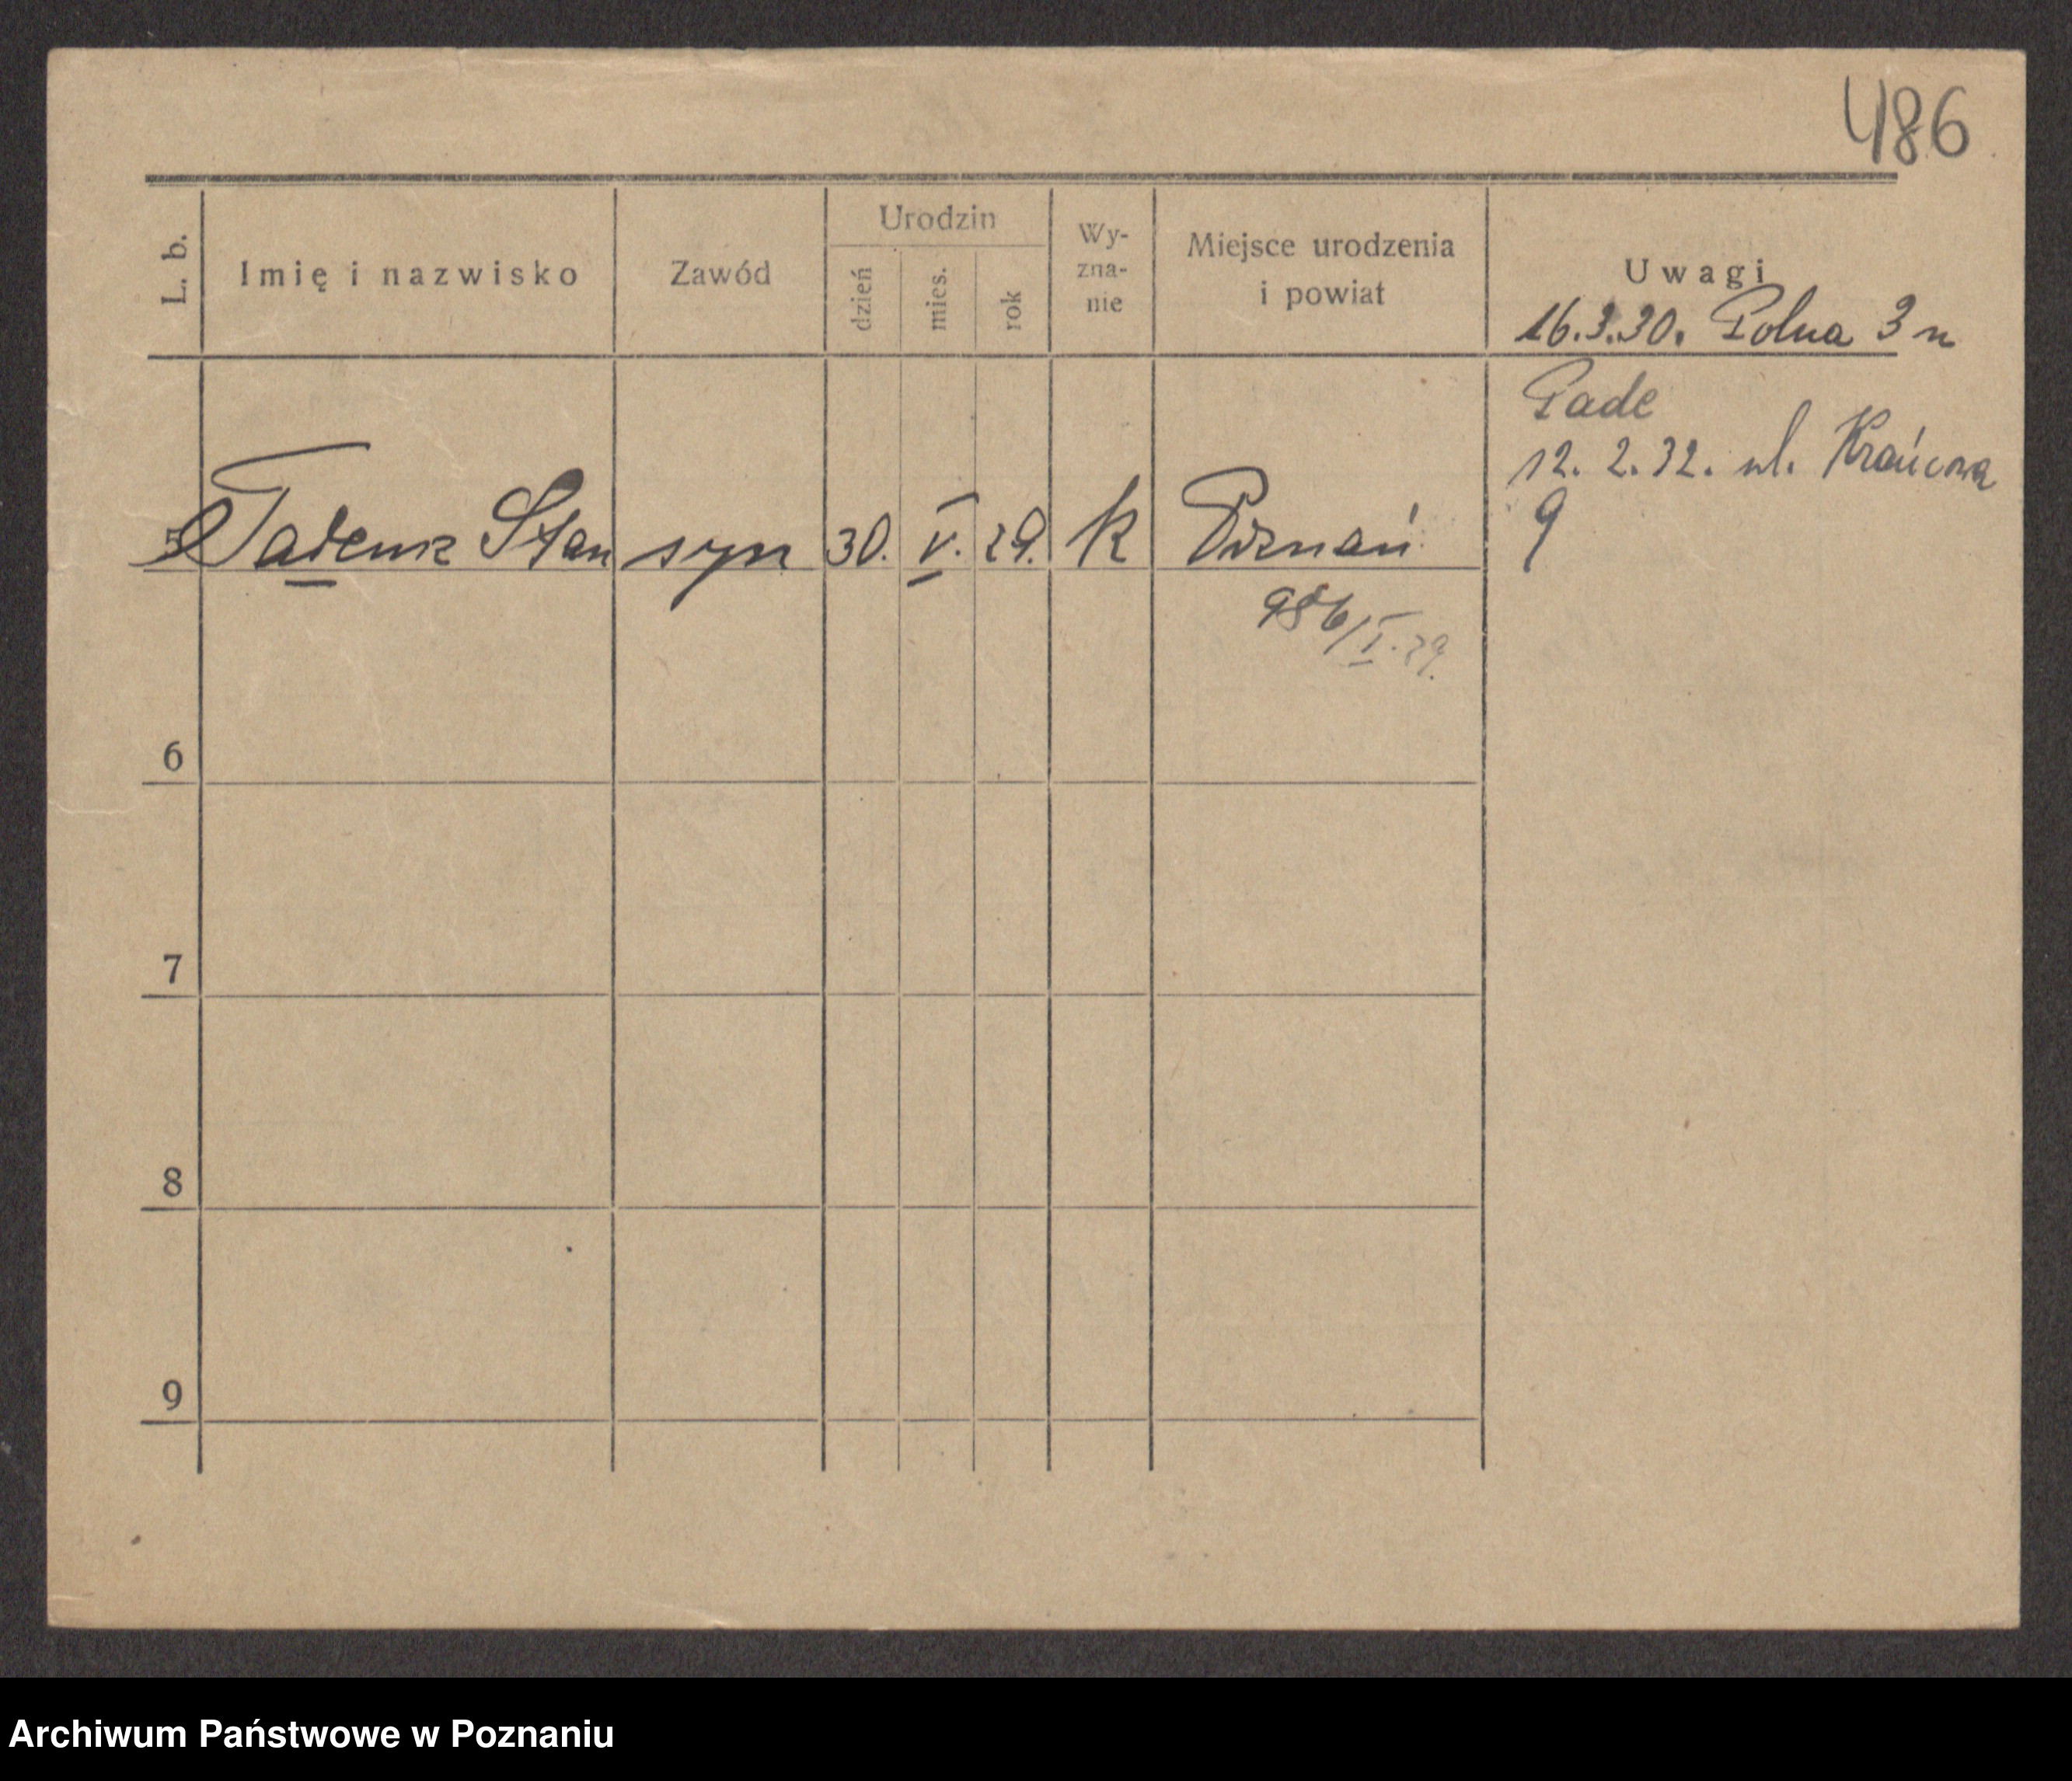 486
L. b.
Imię i nazwisko
Zawód
Urodzin
dzień
mies.
rok
Wy-
zna-
nie
Miejsce urodzenia
i powiat
Uwagi
16.3.30. Polna 3 n
Pade
12. 2. 32. ul. Krańcowa
9
5 Tadeusz Stan syn 30. V. 29. k Poznań
986/I.29.
6
7
8
9
Archiwum Państwowe w Poznaniu